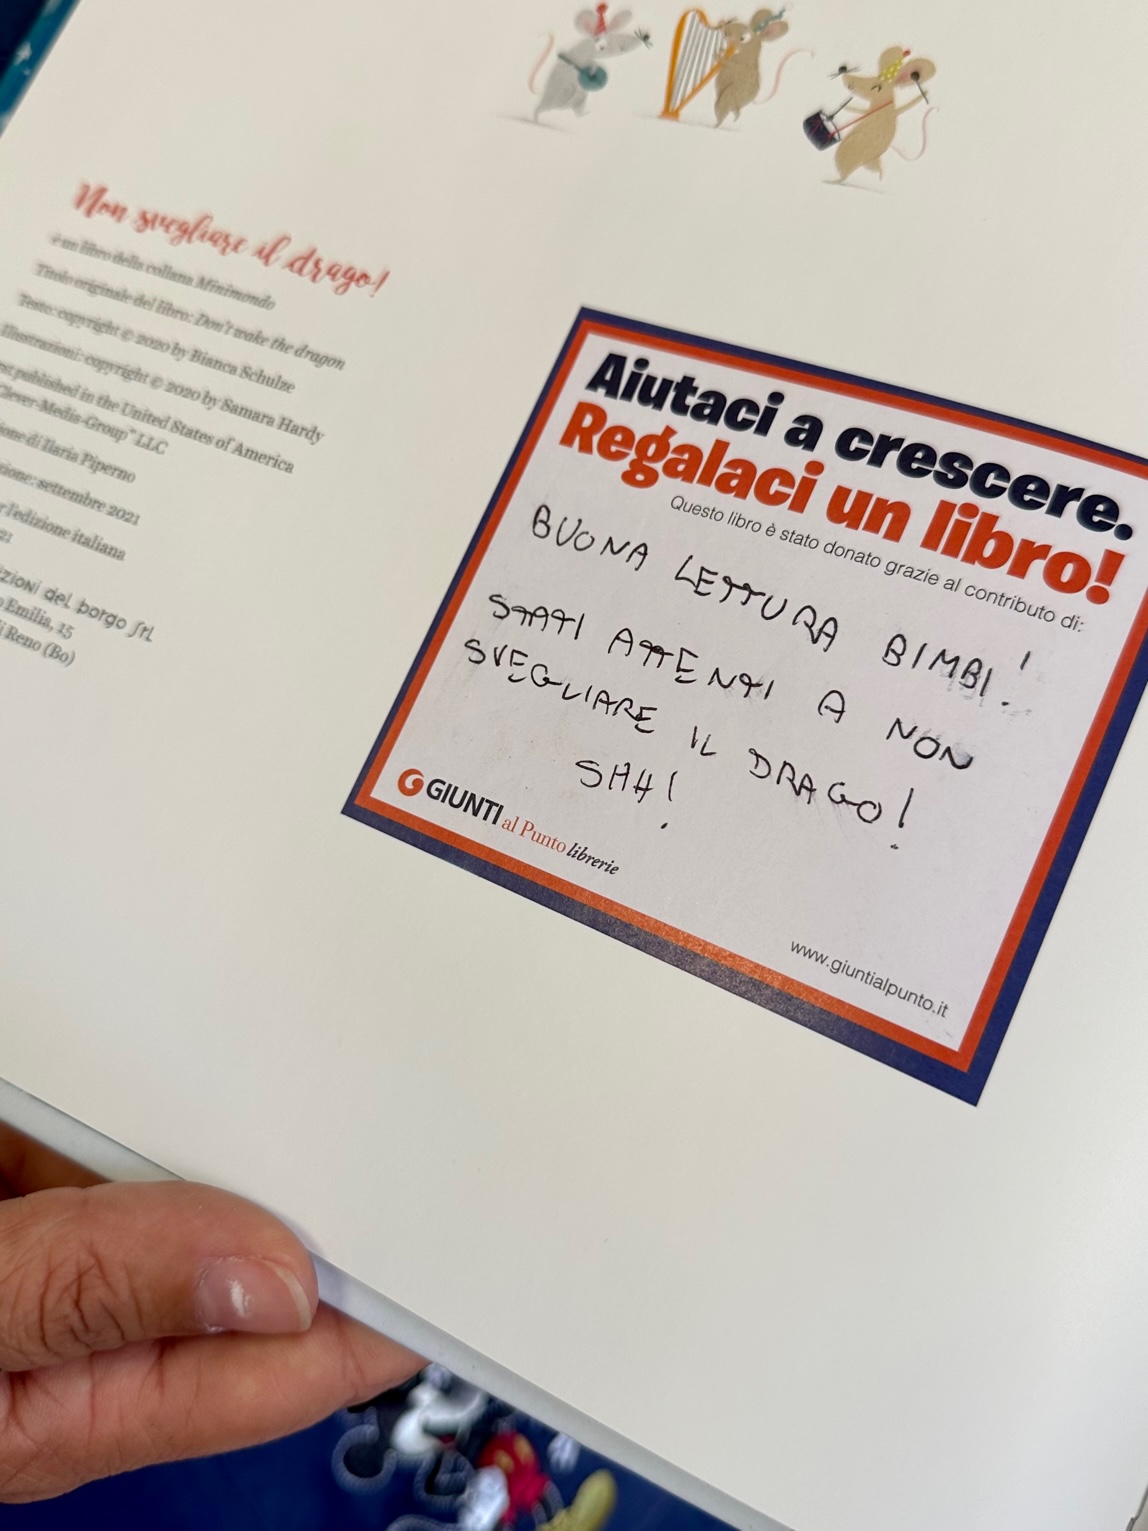 Non svegliare il drago!
è un libro della collana Minimondo
Titolo originale del libro: Don't wake the dragon
Testo: copyright © 2020 by Bianca Schulze
Illustrazioni: copyright © 2020 by Samara Hardy
published in the United States of America
Clever-Media-Group" LLC
di Ilaria Piperno
settembre 2021
l'edizione italiana
del borgo srl
Emilia, 15
Reno (Bo)
Aiutaci a crescere.
Regalaci un libro!
Questo libro è stato donato grazie al contributo di:
BUONA LETTURA BIMBI!
STATI ATTENTI A NON
SVEGLIARE IL DRAGO!
SHH!
GIUNTI al Punto librerie
www.giuntialpunto.it